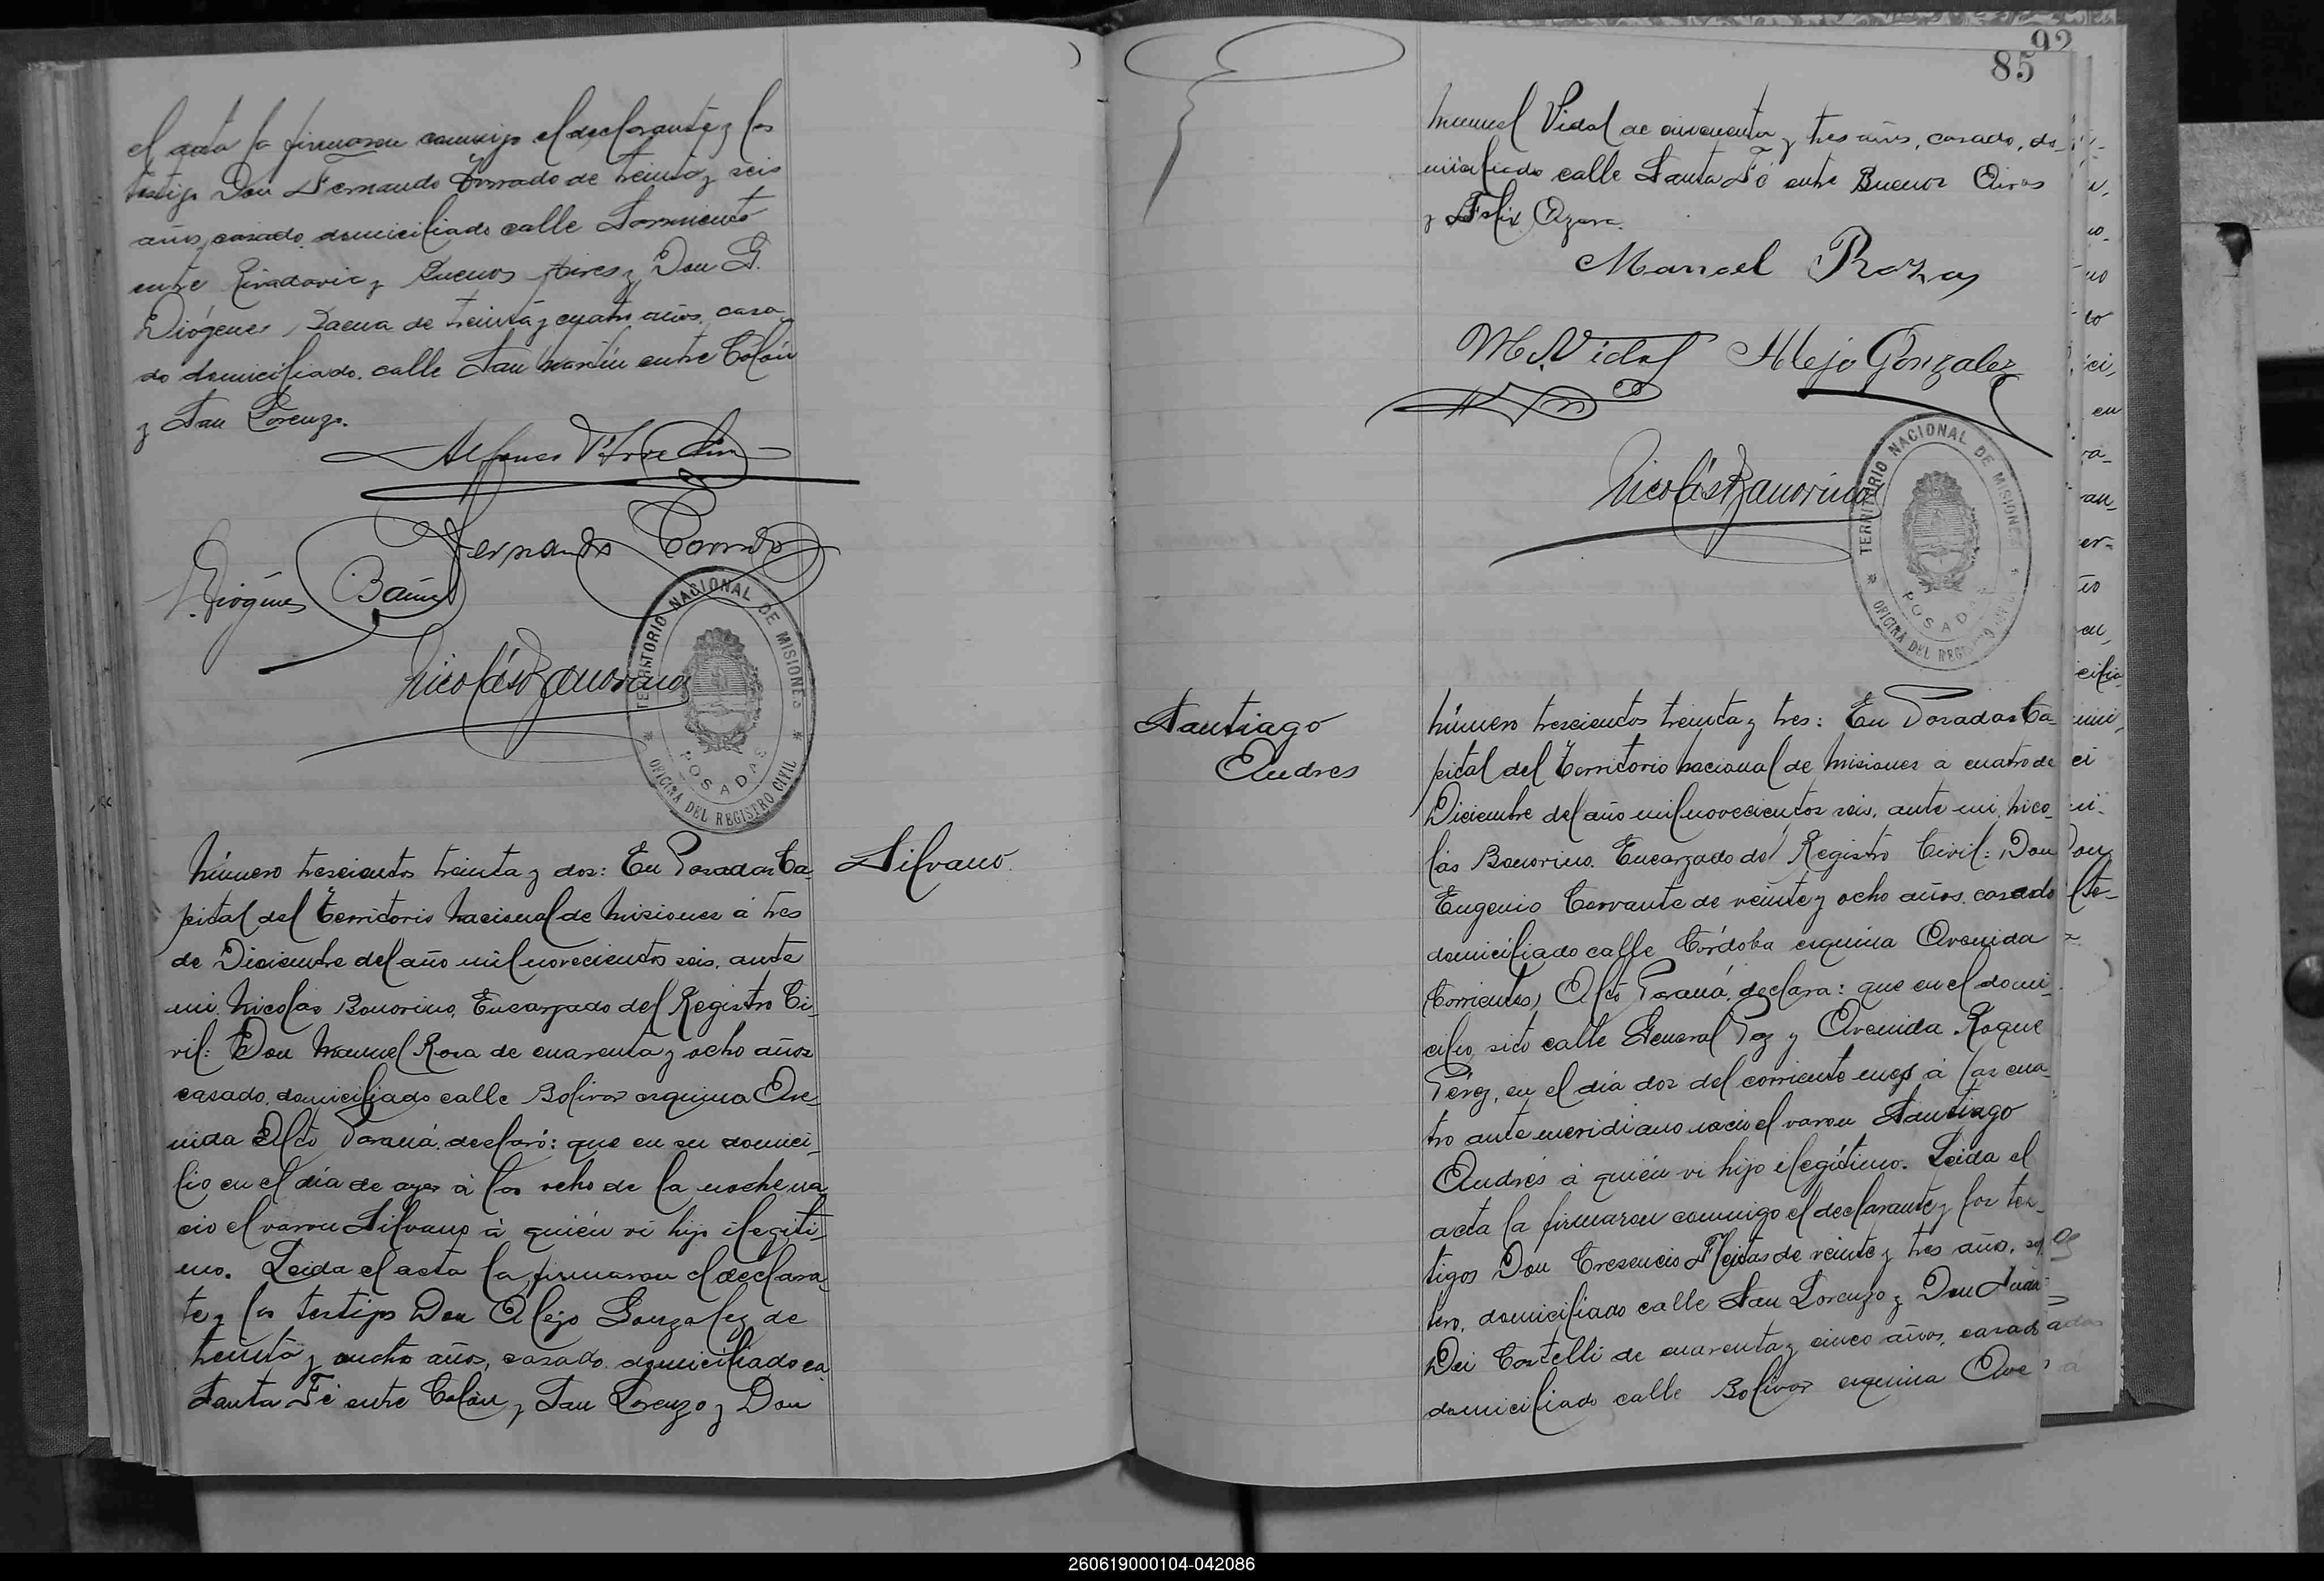 el acta la firmaron conmigo el declarante y los
testigos Don Fernando Torrado de treinta y seis
años, casado, domiciliado calle Sarmiento
entre Rivadavia y Buenos Aires y Don G.
Diógenes de treinta y cuatro años, casa-
do domiciliado calle San Martín entre Colón
y San Lorenzo.
Fernando
Diógenes
Nicolás Bonorino
TERRITORIO NACIONAL DE MISIONES
POSADAS
OFICINA DEL REGISTRO CIVIL
Silvano.
Número trescientos treinta y dos: En Posadas Ca-
pital del Territorio Nacional de Misiones á tres
de Diciembre del año mil novecientos seis, ante
mi Nicolás Bonorino, Encargado del Registro Ci-
vil: Don Manuel Rosa de cuarenta y ocho años
casado, domiciliado calle Bolivar esquina Ave-
nida Alto Paraná, declaró: que en su domici-
lio en el día de ayer á las ocho de la noche na-
cio el varon Silvano á quién vi hijo ilegiti-
mo. Leida el acta la firmaron el declaran-
te y los testigos Don Alejo Gonzalez de
treinta y años, casado, domiciliado ca.
Santa Fé entre Colón y San Lorenzo y Don
92
85
Manuel Vidal de cincuenta y tres años, casado, do-
miciliado calle Santa Fé entre Buenos Aires
y Felix Azara.
Manoel
M. Vidal Alejo Gonzalez
Nicolás Bonorino
TERRITORIO NACIONAL DE MISIONES
POSADAS
OFICINA DEL REGISTRO CIVIL
Santiago
Andres
Número trescientos treinta y tres: En Posadas Ca-
pital del Territorio Nacional de Misiones á cuatro de
Diciembre del año mil novecientos seis, ante mi, Nico-
lás Bonorino, Encargado del Registro Civil: Don
Eugenio Cervante de veinte y ocho años, casado
domiciliado calle Córdoba esquina Avenida
(Corrientes) Alto Paraná, declara: que en el domi-
cilio sito calle General Paz y Avenida Roque
Pérez, en el día dos del corriente mes á las cua-
tro ante meridiano nacio el varon Santiago
Andrés á quién vi hijo ilegítimo. Leida el
acta la firmaron conmigo el declarante y los tes-
tigos Don Cresencio Fleitas de veinte y tres años, sol-
tero, domiciliado calle San Lorenzo y Don Juan
Dei Castelli de cuarenta y cinco años, casado
domiciliado calle Bolivar esquina Ave
260619000104-042086